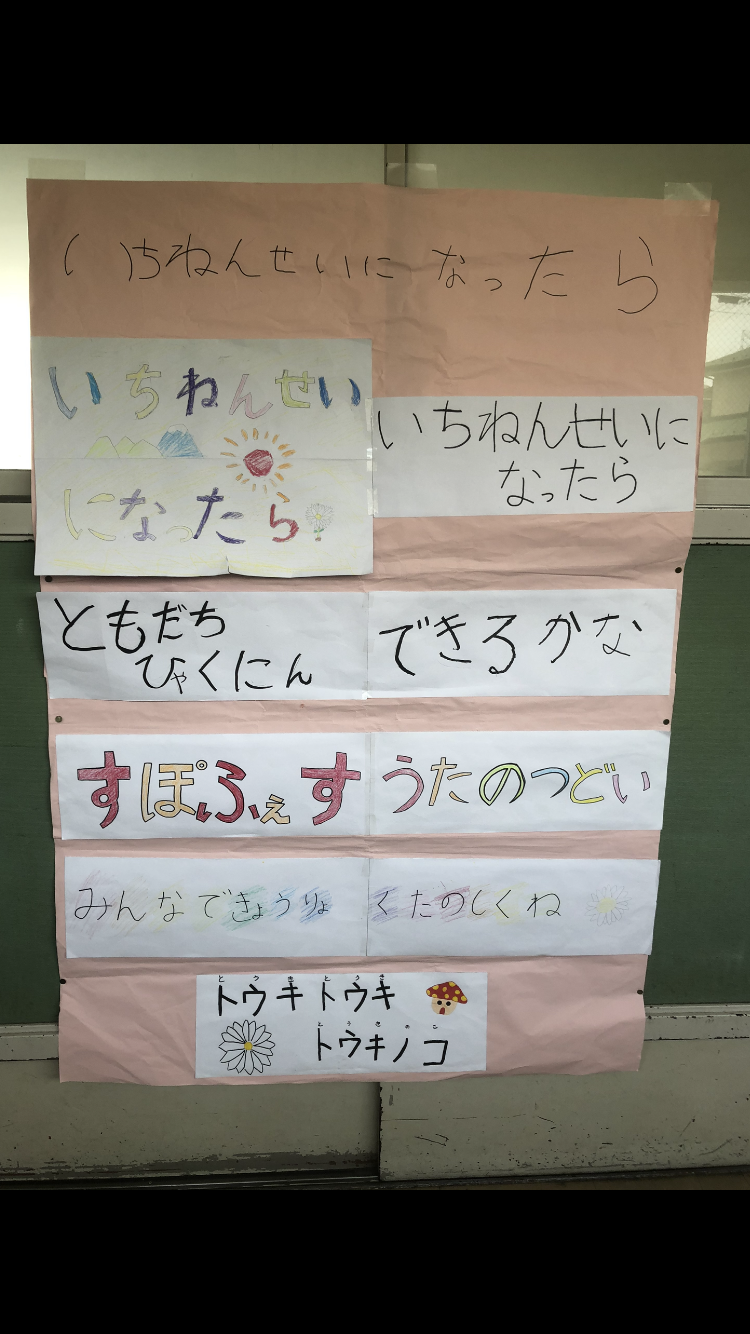 いちねんせいになったら
いちねんせい
になったら
いちねんせいに
なったら
ともだち
ひゃくにん
できるかな
すぽふぇす
うたのつどい
みんなできょうりょ
くたのしくね
とうきとうき
トウキトウキ
とうきのこ
トウキノコ